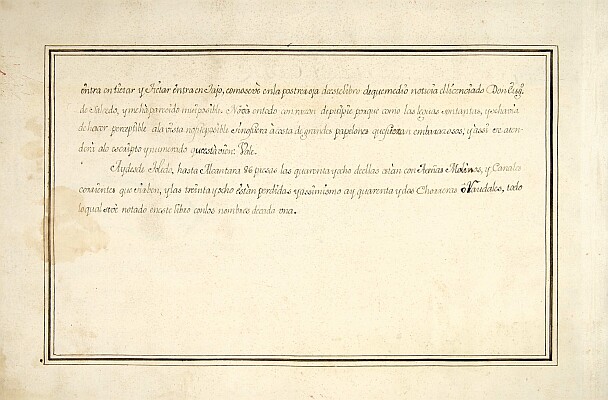 entra en fietar y Fietar entra en Tajo, como se ve en la postrera oja de este libro de que me dio noticia el licenciado Don Eug.
de Salcedo, y me ha parecido mui posible. No va en todo con razon de pitipie porque como las leguas son tantas, y se havia
de hacer perceptible a la vista no fue posible sino fuera a costa de grandes papelones que fueran embarazosos; y assi se aten-
dera a lo escripto y numerado que esta vien: Vale.
Ay desde Toledo, hasta Alcantara 86 presas las quarenta y ocho de ellas estan con Azeñas Molinos, y Canales
corrientes que sirben; y las treinta y ocho estan perdidas y assimismo ay quarenta y dos Chorreras ô Raudales, todo
lo qual esta notado en este libro con los nombres de cada una.